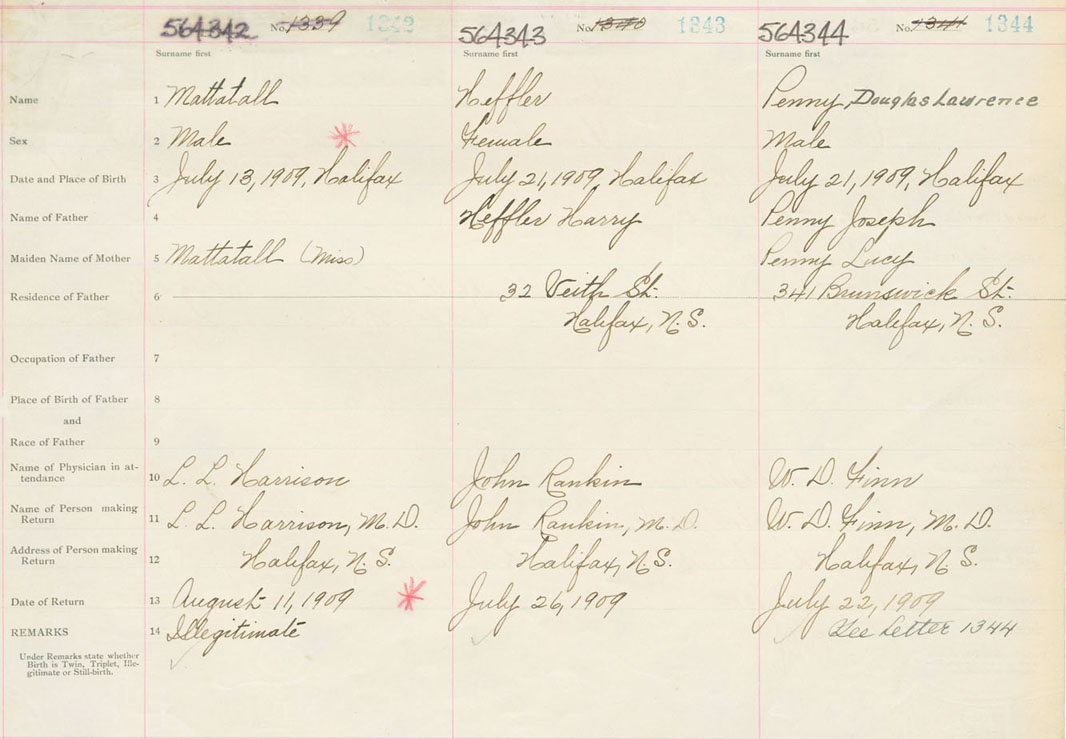 564342 No. 1339 1342 564343 No. 1340 1343 564344 No. 1341 1344
Surname first Surname first Surname first
Name 1 Mattatall Heffler Penny, Douglas Lawrence
Sex 2 Male Female Male
Date and Place of Birth 3 July 13, 1909, Halifax July 21, 1909, Halifax July 21, 1909, Halifax
Name of Father 4 Heffler Harry Penny Joseph
Maiden Name of Mother 5 Mattatall (Miss) Penny Lucy
Residence of Father 6 32 Veith St. 341 Brunswick St.
Halifax, N.S. Halifax, N.S.
Occupation of Father 7
Place of Birth of Father 8
and
Race of Father 9
Name of Physician in at-
tendance 10 L. L. Harrison John Rankin W. D. Finn
Name of Person making
Return 11 L. L. Harrison, M.D. John Rankin, M.D. W. D. Finn, M.D.
Address of Person making
Return 12 Halifax, N.S. Halifax, N.S. Halifax, N.S.
Date of Return 13 August 11, 1909 July 26, 1909 July 22, 1909
REMARKS 14 Illegitimate See Letter 1344
Under Remarks state whether
Birth is Twin, Triplet, Ille-
gitimate or Still-birth.